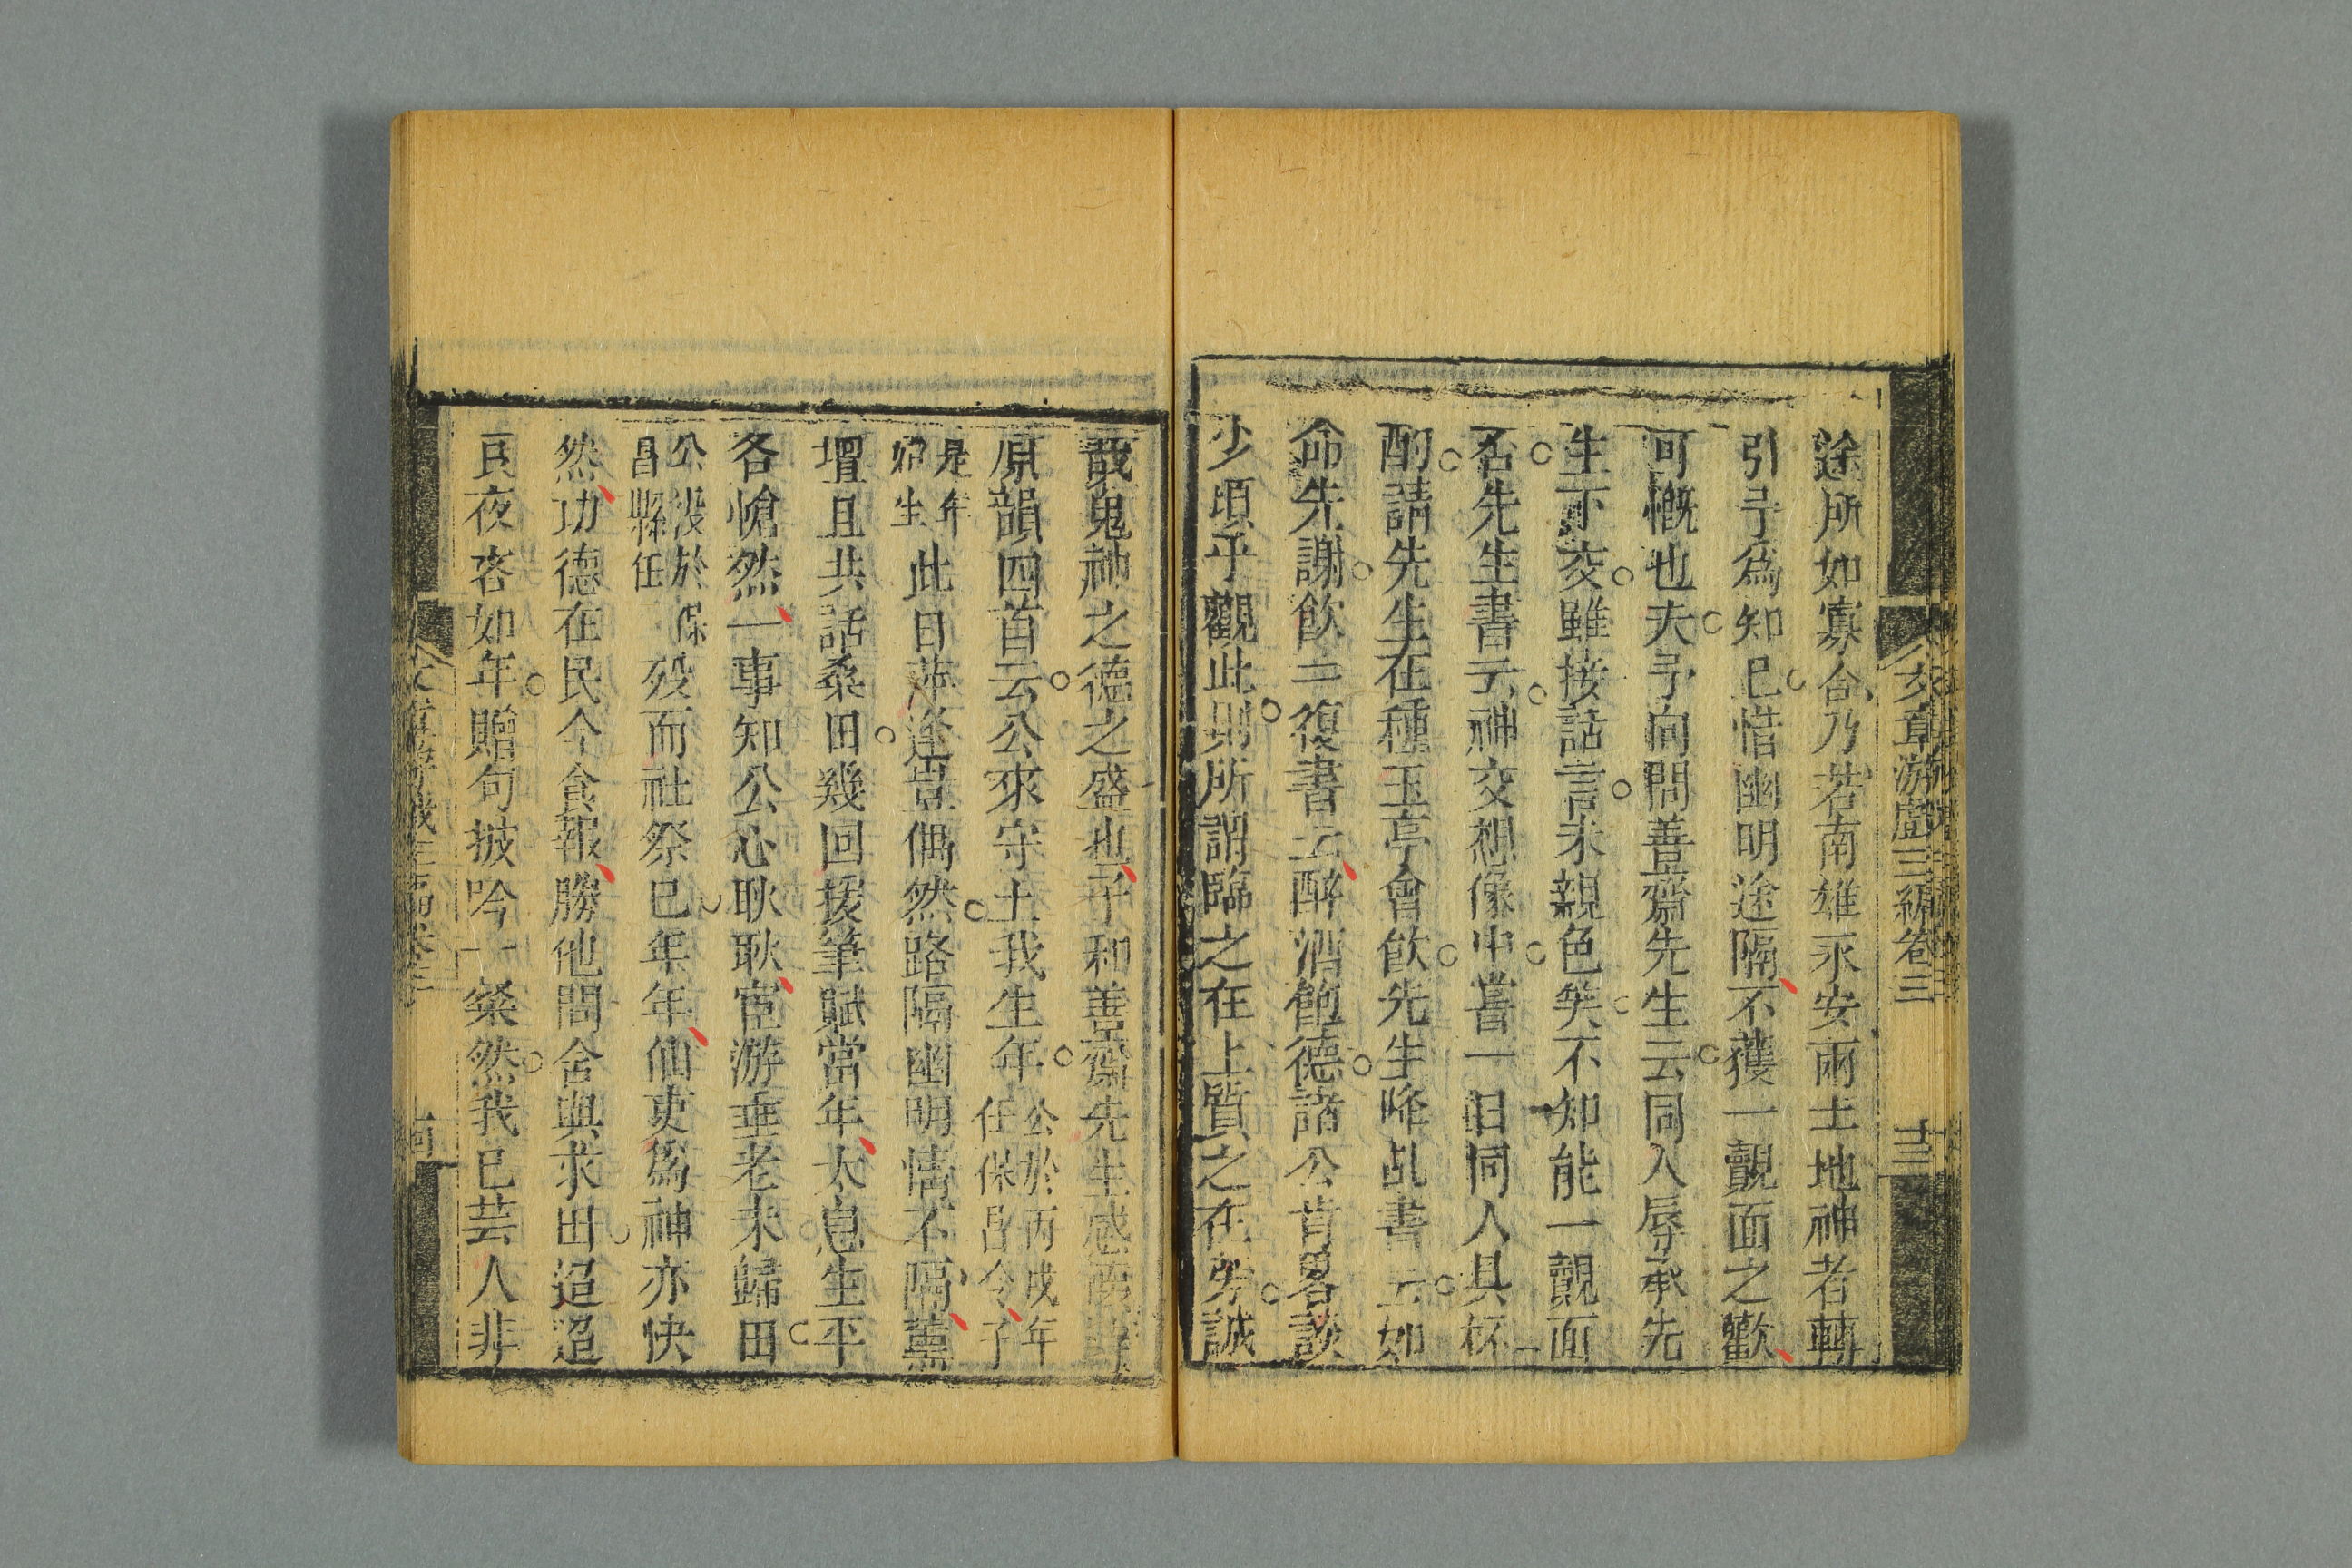 途所如寡合乃若南雄永安兩土地神者轉
引予爲知已惜幽明途隔不獲一覿面之歡
可慨也夫予向問善齋先生云同人辱承先
生下交雖接話言未親色笑不知能一覿面
否先生書云神交想像中嘗一日同人具杯
酌請先生在種玉亭會飲先生降乩書云如
命先謝飲三復書云醉酒飽德諸公肯畧談
少頃乎觀此則所謂臨之在上質之在旁誠
哉鬼神之德之盛也予和善齋先生感懷
原韻四首云公來守土我生年公於丙戌年任保昌令予
是年始生此日萍逢豈偶然路隔幽明情不隔薰
壇且共話桑田幾回援筆賦當年太息生平
各愴然一事知公心耿耿宦游垂老未歸田
公沒於保昌縣任歿而社祭已年年仙吏爲神亦快
然功德在民今食報勝他問舍與求田迢迢
良夜客如年贈句披吟一粲然我已芸人非
文章游戲三編卷三 十三